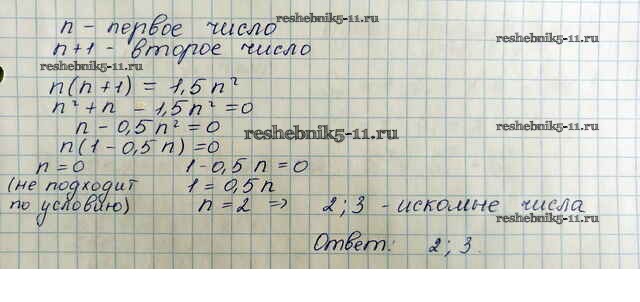 n - первое число
reshebnik5-11.ru
n+1 - второе число
reshebnik5-11.ru
reshebnik5-11.ru
n(n+1) = 1,5n²
n² + n - 1,5n² = 0
reshebnik5-11.ru
n - 0,5n² = 0
reshebnik5-11.ru
reshebnik5-11.ru
n(1 - 0,5n) = 0
n = 0 1 - 0,5n = 0
(не подходит 1 = 0,5n
по условию) n = 2 => 2; 3 - искомые числа
reshebnik5-11.ru
Ответ: 2; 3.